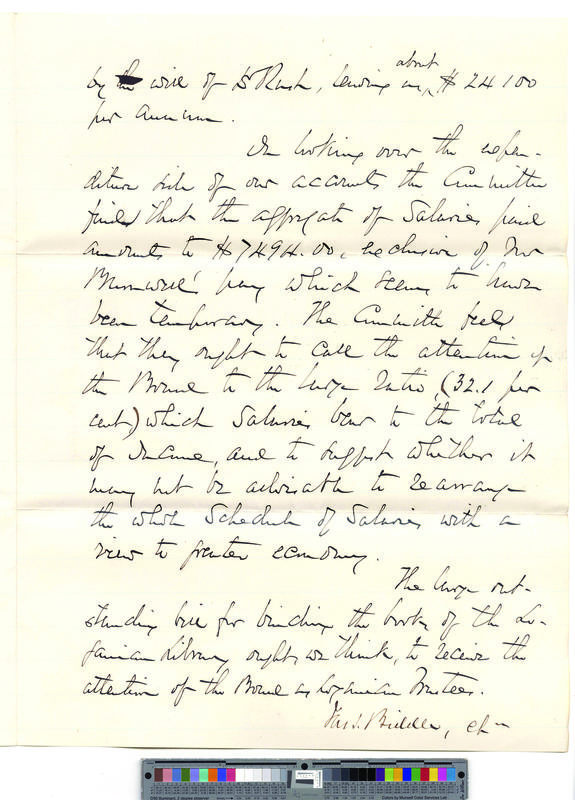 by will of Dr Rush, leaving us, about $24100
per annum.
In looking over the expen-
diture side of our accounts the Committee
finds that the aggregate of Salaries paid
amounts to $7494.00, exclusive of Mr
pay which seems to have
been temporary. The Committee feels
that they ought to call the attention of
the Board to the large ratio, (32.1 per
cent,) which Salaries bear to the total
of Income, and to suggest whether it
may not be advisable to rearrange
the whole Schedule of Salaries with a
view to greater economy.
The large out-
standing bill for binding the books of the Lo-
ganian Library ought, we think, to receive the
attention of the Board as Loganian Trustees.
Jas. S. Biddle, chn